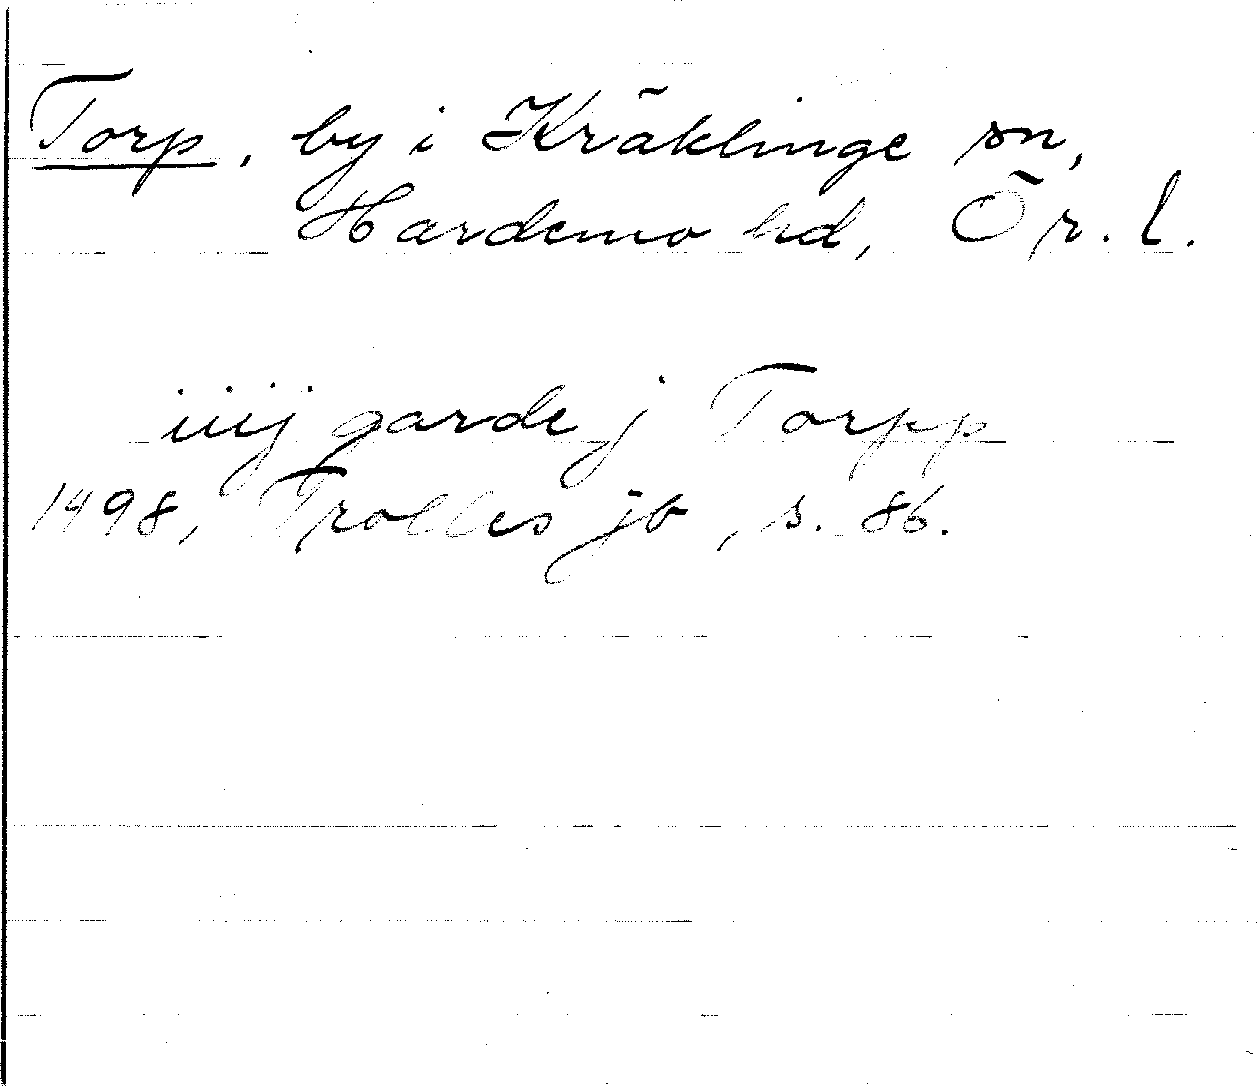 Torp, by i Kräklinge sn,
Hardemo hd, Ör. l.
iiij garde j Torpp
1498, Trolles jb, s. 86.